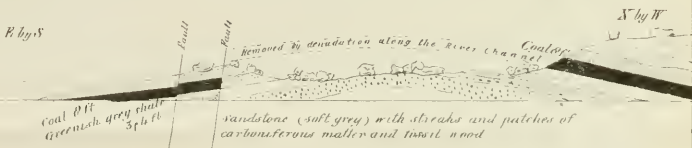 E. by S
N by W
Fault
Fault
Removed by denudation along the River Channel
Coal
Coal 9 ft
Greenish grey shale
3 ft
sandstone (soft grey) with streaks and patches of
carboniferous matter and fossil wood